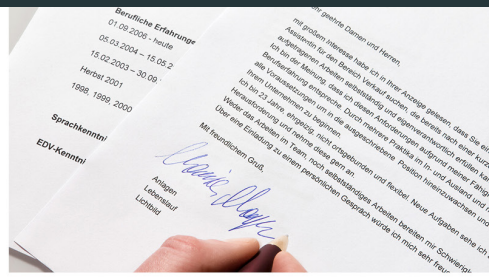 Berufliche Erfahrunge
01.09.2008 - heute
05.03.2004 – 15.05.2
15.02.2003 – 30.09.
Herbst 2001
1998, 1999, 2000
Sprachkenntni
EDV-Kenntni
geehrte Damen und Herren,
mit großem Interesse habe ich in Ihrer Anzeige gelesen, dass Sie ein
Assistentin für den Bereich Verkauf suchen, die bereits nach einer kurz
aufgetragenen Arbeiten selbstständig und eigenverantwortlich erfüllen kan
Ich bin der Meinung, dass ich diesen Anforderungen aufgrund meiner Fähig
Berufserfahrung entspreche. Durch mehrere Praktika im In- und Ausland und
alle Voraussetzungen um in die ausgeschriebene Position hineinzuwachsen und
Ihrem Unternehmen zu beginnen.
Ich bin 23 Jahre, ehrgeizig, nicht ortsgebunden und flexibel. Neue Aufgaben sehe ich
Herausforderung und nehme diese gern an.
Weder das Arbeiten im Team, noch selbstständiges Arbeiten bereiten mir Schwierig
Über eine Einladung zu einem persönlichen Gespräch würde ich mich sehr freu
Mit freundlichem Gruß,
Anlagen
Lebenslauf
Lichtbild